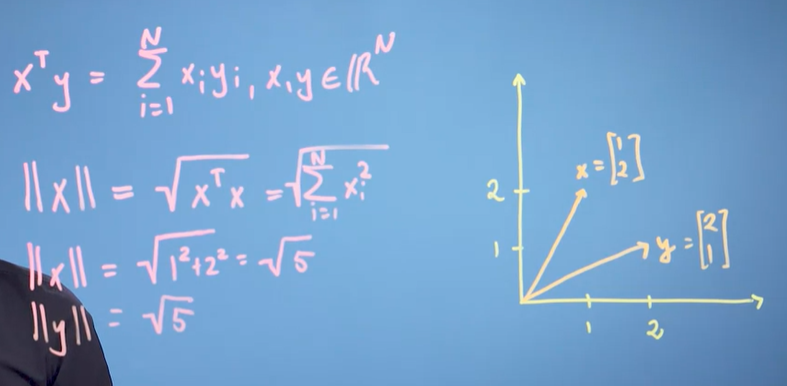 xᵀy = ∑ᵢ₌₁ᴺ xᵢyᵢ, x,y ∈ ℝᴺ
||x|| = √(xᵀx) = √(∑ᵢ₌₁ᴺ xᵢ²)
||x|| = √(1²+2²) = √5
||y|| = √5
x = [1 2]
y = [2 1]
2
1
1 2